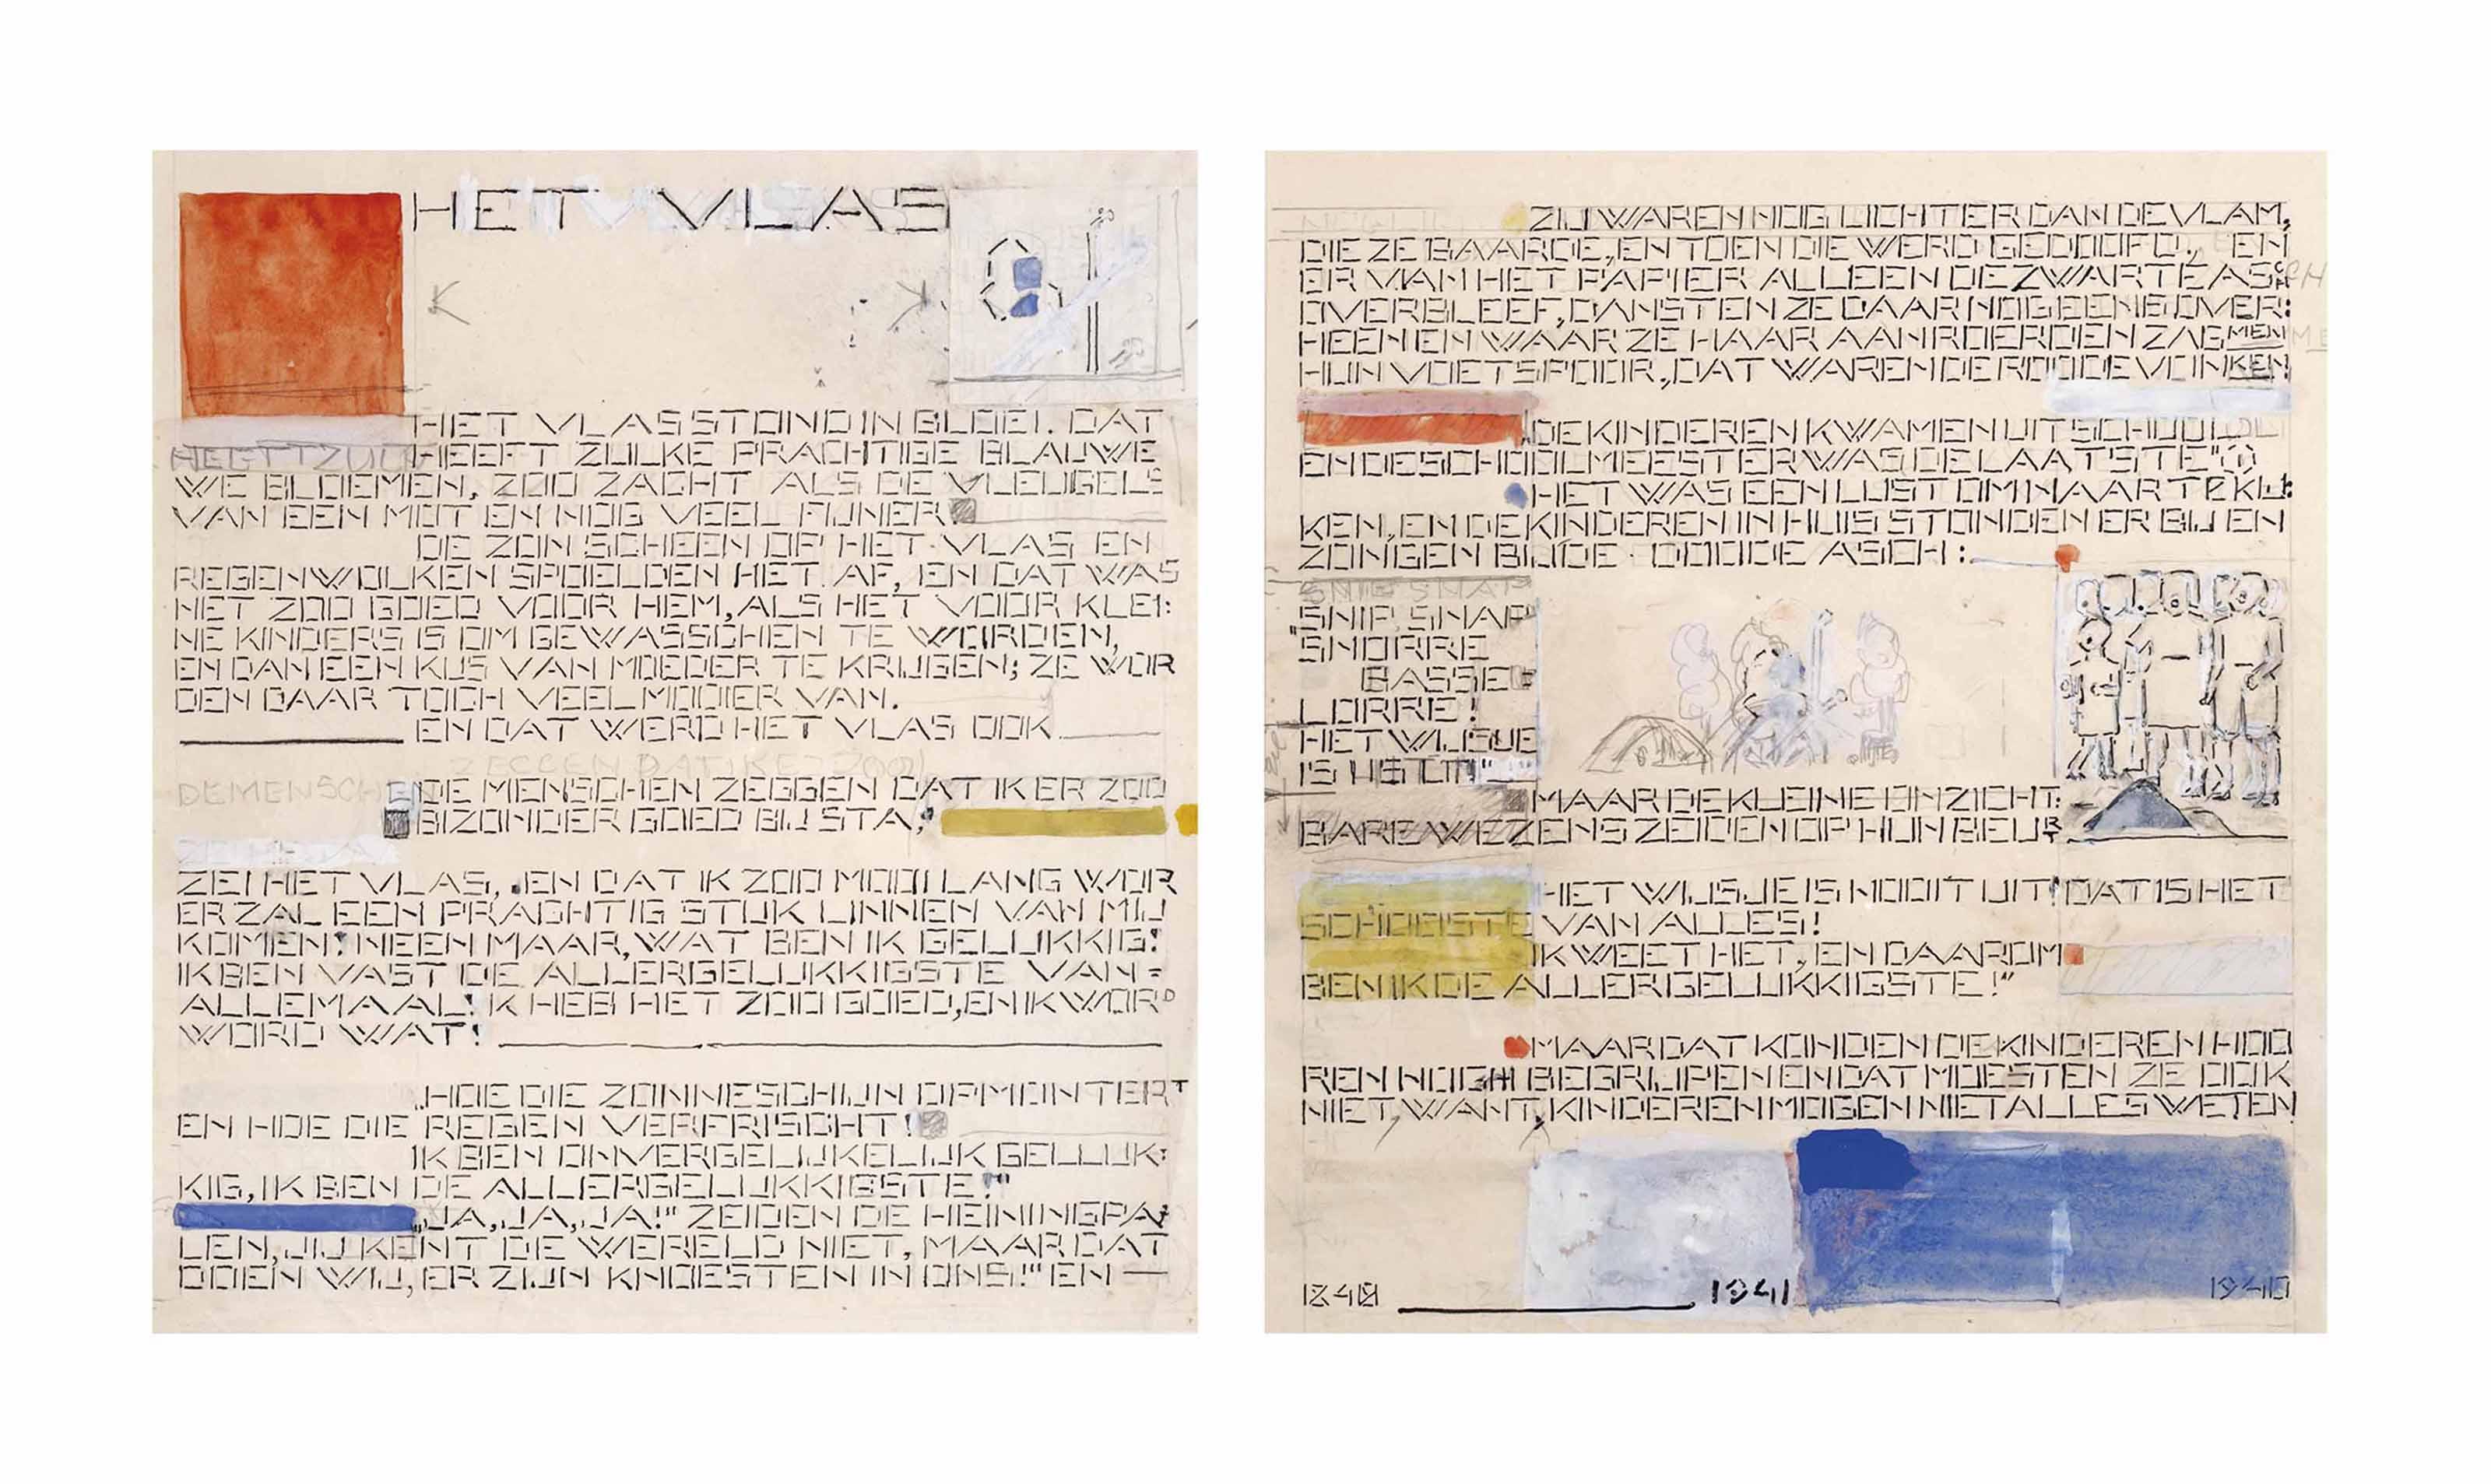 HET VLAS
HET VLAS STOND IN BLOEI. DAT
HEEFT ZULKE PRACHTIGE BLAUWE
WE BLOEMEN, ZOO ZACHT ALS DE VLEUGELS
VAN EEN MOT EN NOG VEEL FIJNER
DE ZON SCHEEN OP HET VLAS EN
REGENWOLKEN SPOELDEN HET AF, EN DAT WAS
NET ZOO GOED VOOR HEM, ALS HET VOOR KLEI:
NE KINDERS IS OM GEWASSCHEN TE WORDEN,
EN DAN EEN KUS VAN MOEDER TE KRIJGEN; ZE WOR
DEN DAAR TOCH VEEL MOOIER VAN.
EN DAT WERD HET VLAS OOK
ZEGGEN DAT IK
DE MENSCHEN
DE MENSCHEN ZEGGEN DAT IK ER ZOO
BIZONDER GOED BIJ STA,"
ZEI HET VLAS, „EN DAT IK ZOO MOOI LANG WOR
ER ZAL EEN PRACHTIG STUK LINNEN VAN MIJ
KOMEN! NEEN MAAR, WAT BEN IK GELUKKIG!
IK BEN VAST DE ALLERGELUKKIGSTE VAN =
ALLEMAAL! IK HEB HET ZOO GOED, EN IK WORD
WORD WAT!
„HOE DIE ZONNESCHIJN OPMONTERT
EN HOE DIE REGEN VERFRISCHT!
IK BEN ONVERGELIJKELIJK GELUK:
KIG, IK BEN DE ALLERGELUKKIGSTE!"
„JA, JA, JA!" ZEIDEN DE HEININGPA:
LEN, JIJ KENT DE WERELD NIET, MAAR DAT
DOEN WIJ, ER ZIJN KNOESTEN IN ONS!" EN
ZIJ WAREN NOG LICHTER DAN DE VLAM,
DIE ZE BAARDE, EN TOEN DIE WERD GEDOOFD, EN
ER VAN HET PAPIER ALLEEN DE ZWARTE ASCH
OVERBLEEF, DANSTEN ZE DAAR NOG EENS OVER:
HEEN EN WAAR ZE HAAR AANROERDEN ZAG MEN
HUN VOETSPOOR, DAT WAREN DE ROODE VONKEN!
DE KINDEREN KWAMEN UIT SCHOOL
EN DE SCHOOLMEESTER WAS DE LAATSTE"
HET WAS EEN LUST OM NAAR TE KIJ:
KEN, EN DE KINDEREN IN HUIS STONDEN ER BIJ EN
ZONGEN BIJ DE DOODE ASCH:
SNIP SNAP
SNIP, SNAP
"SNORRE
BASSE
LORRE!
HET WIJSJE
IS UIT!"
MAAR DE KLEINE ONZICHT:
BARE WEZENS ZEIDEN OP HUN BEURT
HET WIJSJE IS NOOIT UIT! DAT IS HET
SCHOONSTE VAN ALLES!
IK WEET HET, EN DAAROM
BEN IK DE ALLERGELUKKIGSTE!"
MAAR DAT KONDEN DE KINDEREN HOO
REN NOCH BEGRIJPEN EN DAT MOESTEN ZE OOK
NIET, WANT, KINDEREN MOGEN NIET ALLES WETEN!
1941
1940